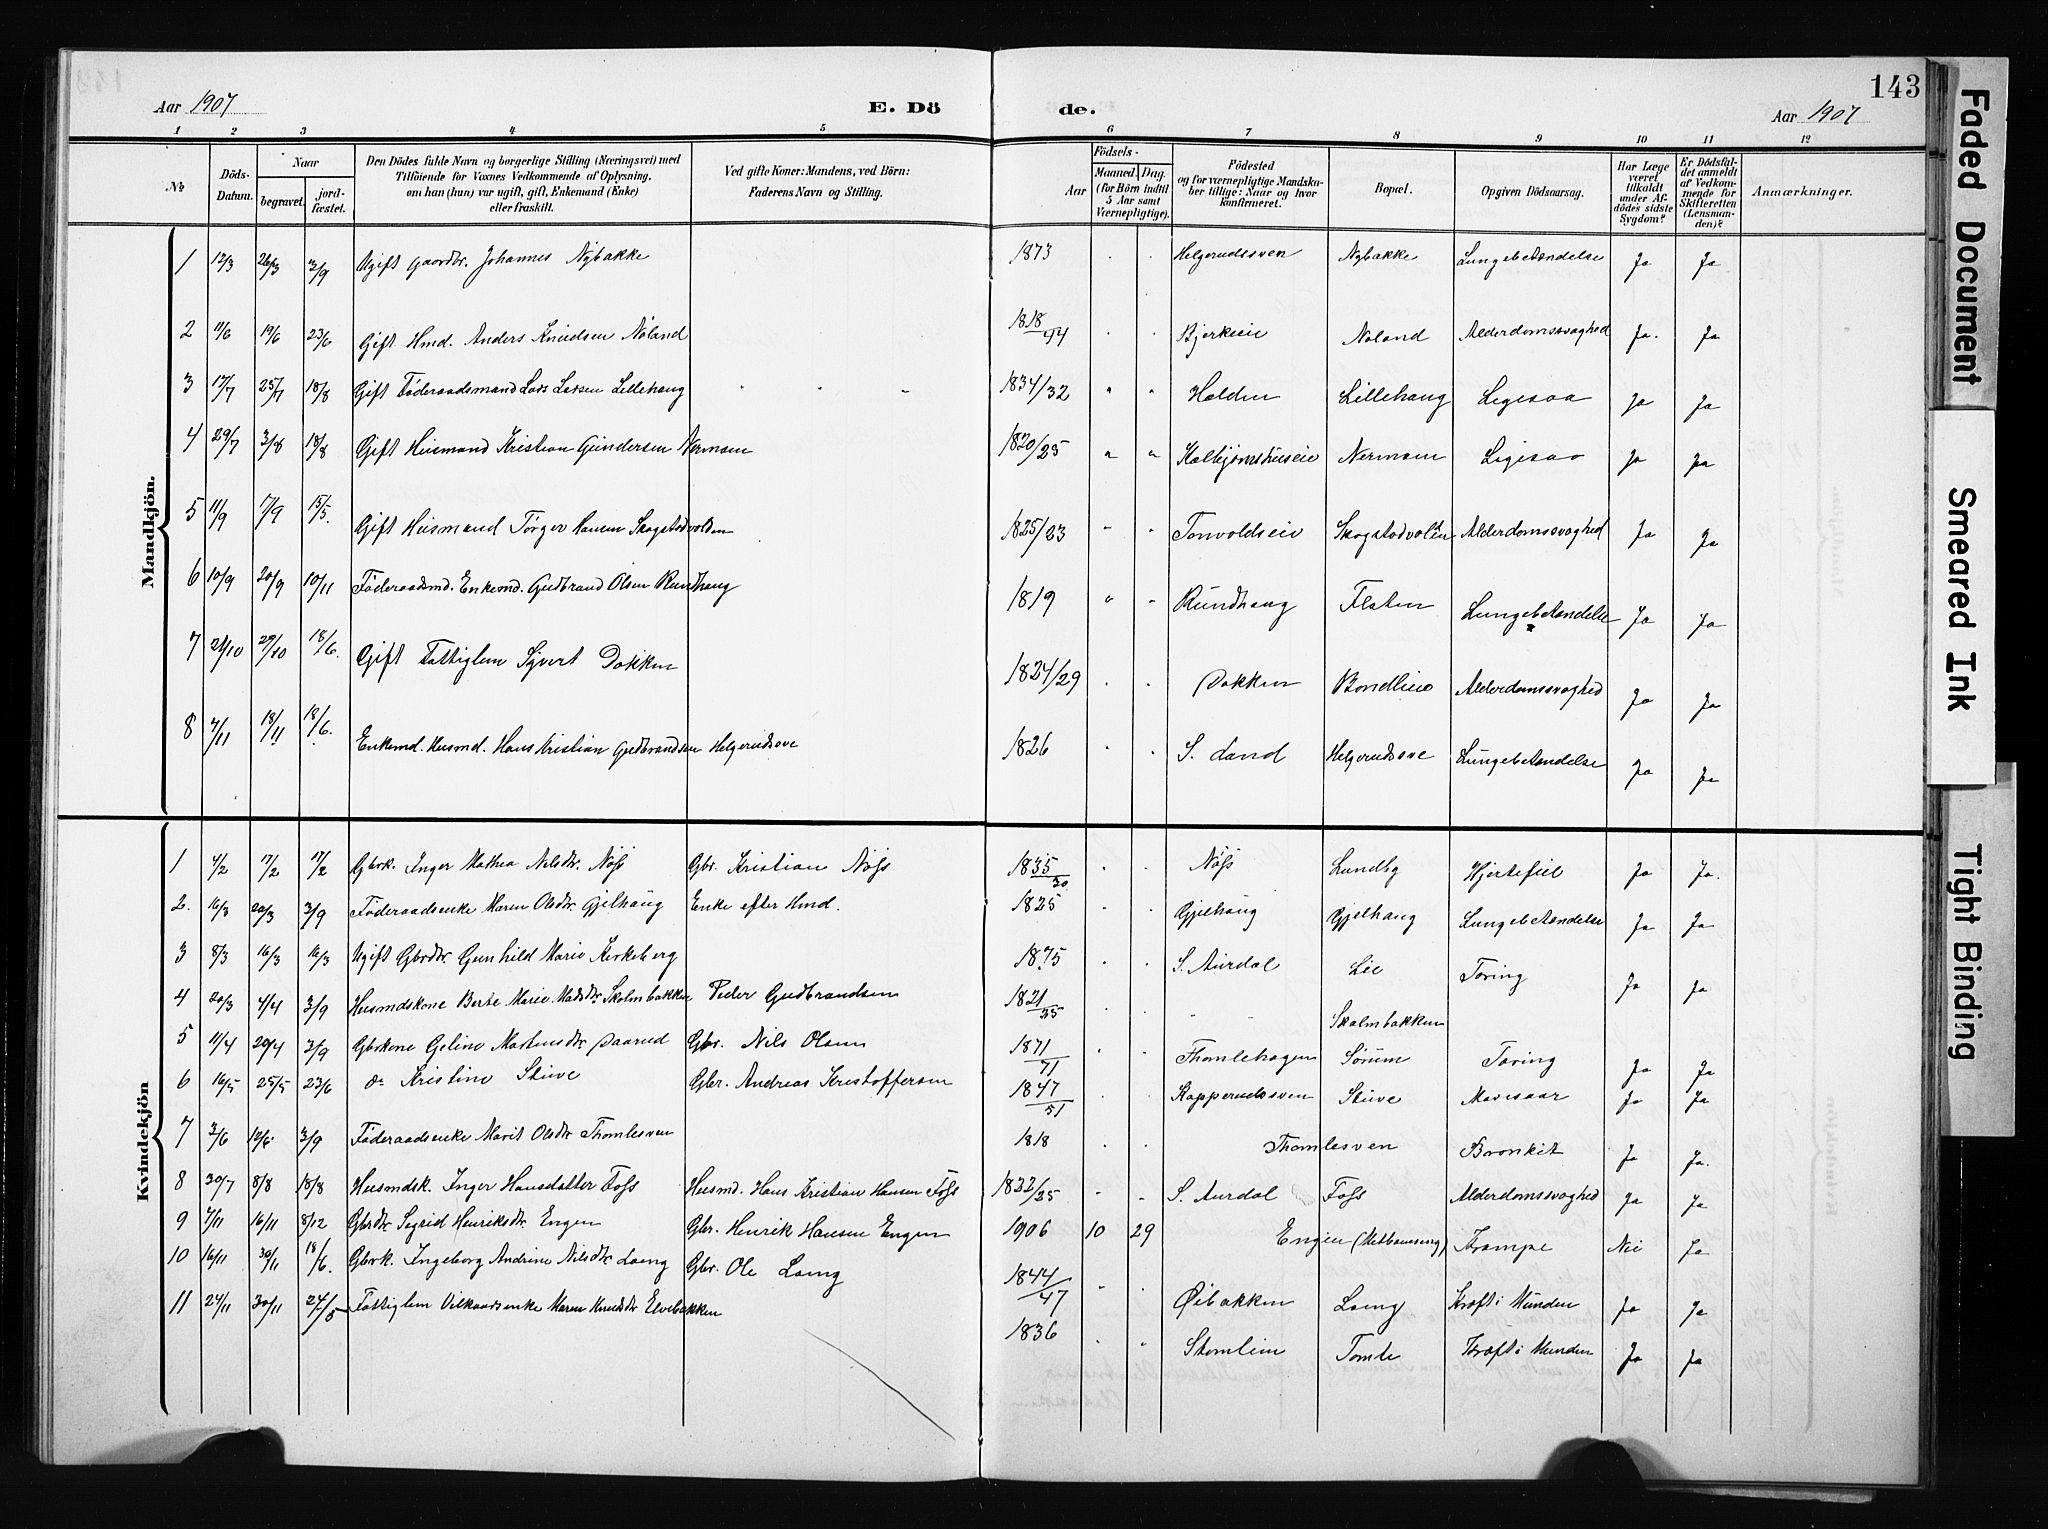 143
Aar 1907 E. Dö de. Aar 1907
1 2 3 4 5 6 7 8 9 10 11 12
No Döds-Datum. Naar begravet. jord-fæstet. Den Dödes fulde Navn og borgerlige Stilling (Næringsvei) med Tilföiende for Voxnes Vedkommende af Oplysning, om han (hun) var ugift, gift, Enkemand (Enke) eller fraskilt. Ved gifte Koner: Mandens, ved Börn: Faderens Navn og Stilling. Födsels- Aar Maaned. Dag. (for Börn indtil 5 Aar samt Værnepligtige). Födested og for værnepligtige Mandska-ber tillige: Naar og hvor konfirmeret. Bopæl. Opgiven Dödsaarsag. Har Læge været tilkaldt under Af-dödes sidste Sygdom? Er Dödsfal-det anmeldt af Vedkom-mende for Skifteretten (Lensman-den)? Anmærkninger.
Mandkjön.
1 12/3 26/3 3/9 Ugift Gaardbr. Johannes Nybakke 1873 Helgerudsven Nybakke Lungebetændelse Ja Ja
2 11/6 19/6 23/6 Gift Hmd. Anders Knudsen Noland 1818/44 Bjerkeie Noland Alderdomssvaghed Ja. Ja
3 17/7 25/7 18/8 Gift Föderaadsmand Lars Larsen Lillehaug 1834/32 " " Halden Lillehaug Ligesaa Ja Ja
4 29/7 3/8 18/8 Gift Husmand Kristian Gundersen Nermoen 1820/25 " " Nermoen Ligesaa Ja Ja
5 11/9 17/9 15/5. Gift Husmand Törger Hansen Skogstadvolden 1825/23 " " Tonvoldseie Skogstadvolden Alderdomssvaghed Ja Ja
6 10/9 20/9 10/11 Föderaadsmd. Enkemd. Gudbrand Olsen Rundhaug 1819 " " Rundhaug Flaten Lungebetændelse Ja Ja
7 21/10 29/10 18/6. Gift Fattiglem Sjvert Dokken 1824/29 Dokken Bondlien Alderdomssvaghed Ja Ja
8 7/11 18/11 18/6. Enkemd. Husmd. Hans Kristian Gudbrandsen Helgerudsve 1826 S. Land Helgerudsve Lungebetændelse Ja Ja
Kvindekjön
1 4/2 17/2 17/2 Gbrk. Inger Mathea Nilsdtr. Nöss Gbr. Kristian Nöss 1835/30 Nöss Lundby Hjertefeil Ja Ja.
2. 16/3 20/3 3/9 Föderaadsenke Maren Olsdtr. Gjelhaug Enke efter Hmd. 1825 Gjelhaug Gjelhaug Lungebetændelse Ja Ja
3 8/3 16/3 16/3 Ugift Gbrdtr. Gunhild Marie Kirkeberg 1875 S. Aurdal Lie Tæring Ja Ja
4 20/3 4/4 3/9 Husmdskone Berte Marie Madsdtr. Skolmbakken Peder Gudbrandsen 1821/25 " " Skolmbakken
5 11/4 20/4 3/9 Gbrkone Geline Martinsdtr. Daarud Gbr. Nils Olsen 1871/71 Thomlehagen Sörum Tæring Ja Ja
6 16/5 25/5 23/6 do Kristine Stuve Gbr. Andreas Kristoffersen 1847/51 Kopperudsven Stuve Mavesaar Ja Ja
7 3/6 12/6 3/9 Föderaadsenke Marit Olsdtr Thomlesven 1818 Thomlesven Bronkit Ja Ja.
8 30/7 8/8 18/8 Husmdsk. Inger Hansdatter Foss Husmd. Hans Kristian Hansen Foss 1822/25 S. Aurdal Foss Alderdomssvaghed Ja Ja
9 7/11 16/11 8/12 Gbrdtr. Sigrid Henriksdtr. Engen Gbr. Henrik Hansen Engen 1906 10 29 Engen Krampe Nei Ja
10 16/11 30/11 18/6. Gbrk. Ingeborg Andrine Nilsdtr. Loeng Gbr. Ole Loeng 1844/47 Öibakken Loeng Kræft i Munden Ja Ja
11 24/11 30/11 24/5 Fattiglem Vilkaarsenke Maren Knudsdtr. Elvebakken 1836 Skomlien Tomte Kræft i Munden Ja Ja
Faded Document
Smeared Ink
Tight Binding